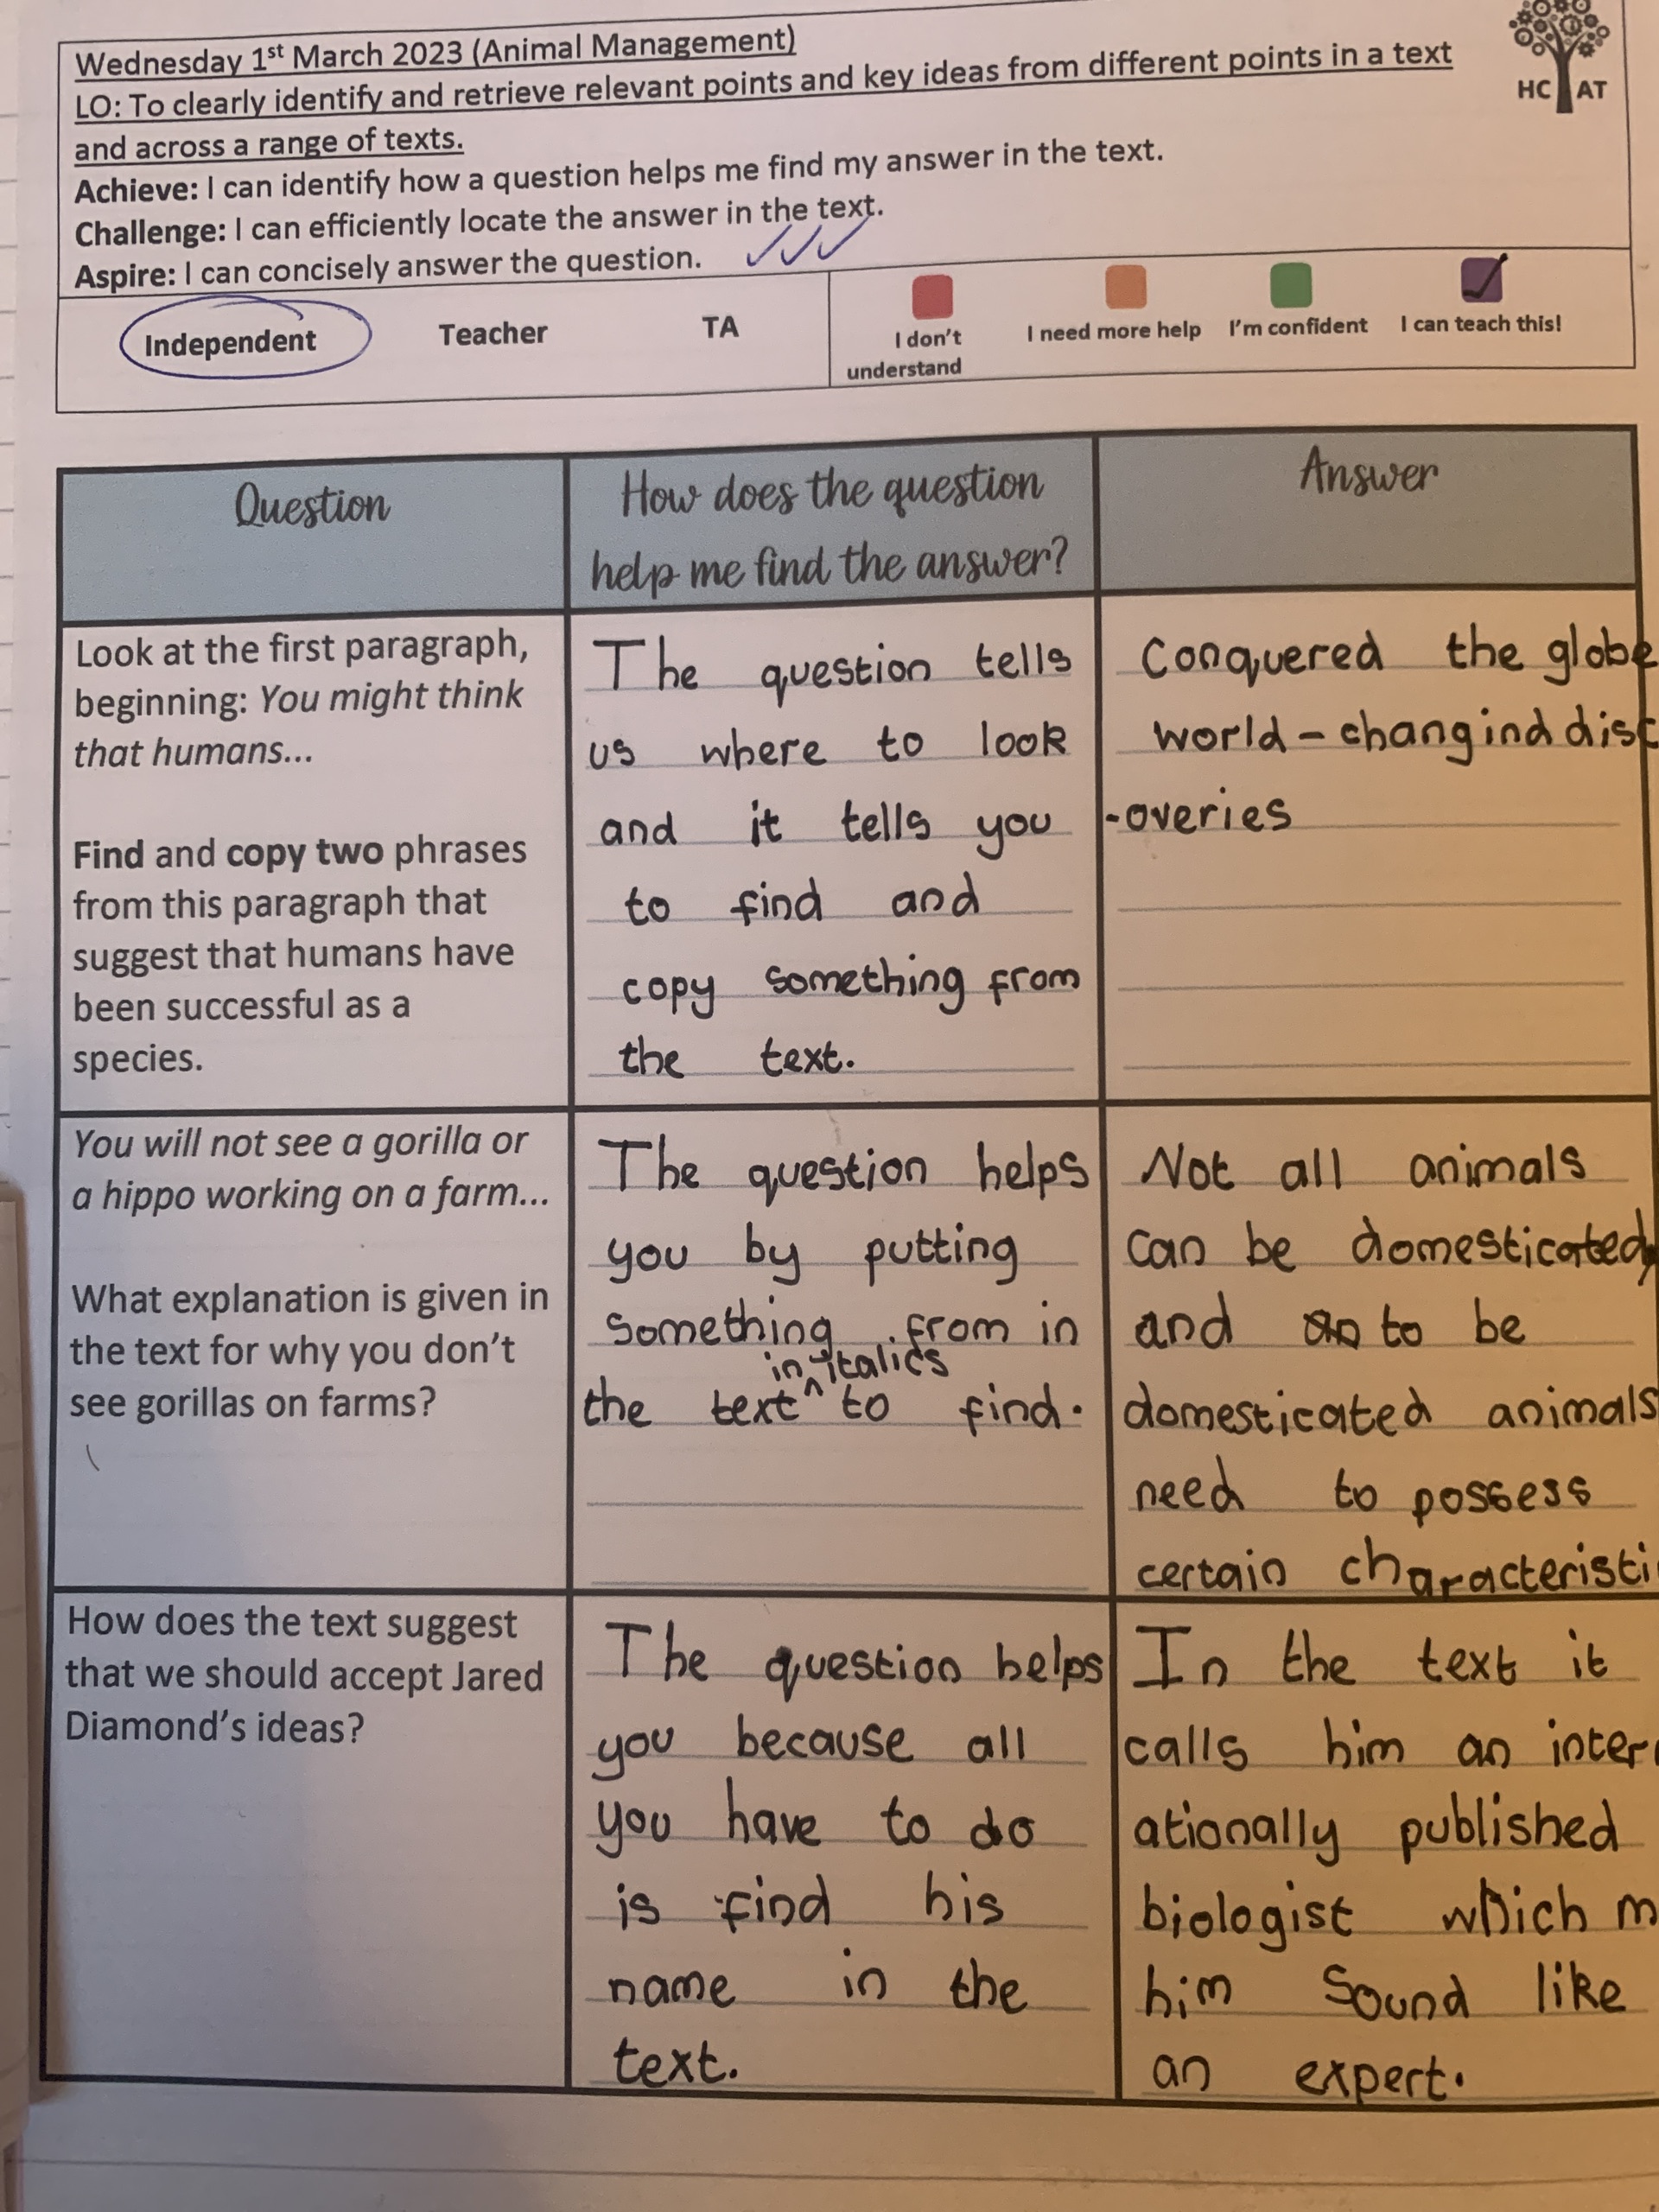 Wednesday 1st March 2023 (Animal Management)
LO: To clearly identify and retrieve relevant points and key ideas from different points in a text
and across a range of texts.
Achieve: I can identify how a question helps me find my answer in the text.
Challenge: I can efficiently locate the answer in the text.
Aspire: I can concisely answer the question.
HC AT
Independent
Teacher
TA
I don't
understand
I need more help
I'm confident
I can teach this!
Question
How does the question
help me find the answer?
Answer
Look at the first paragraph,
beginning: You might think
that humans...
Find and copy two phrases
from this paragraph that
suggest that humans have
been successful as a
species.
The question tells
us where to look
and it tells you
to find and
copy something from
the text.
Conquered the globe
world-changind disc
-overies
You will not see a gorilla or
a hippo working on a farm...
What explanation is given in
the text for why you don't
see gorillas on farms?
The question helps
you by putting
something from in
in italics
the text ^ to find.
Not all animals
can be domesticated,
and to be
domesticated animals
need to possess
certain characteristi
How does the text suggest
that we should accept Jared
Diamond's ideas?
The question helps
you because all
you have to do
is find his
name in the
text.
In the text it
calls him an inter
ationally published
biologist which m
him sound like
an expert.